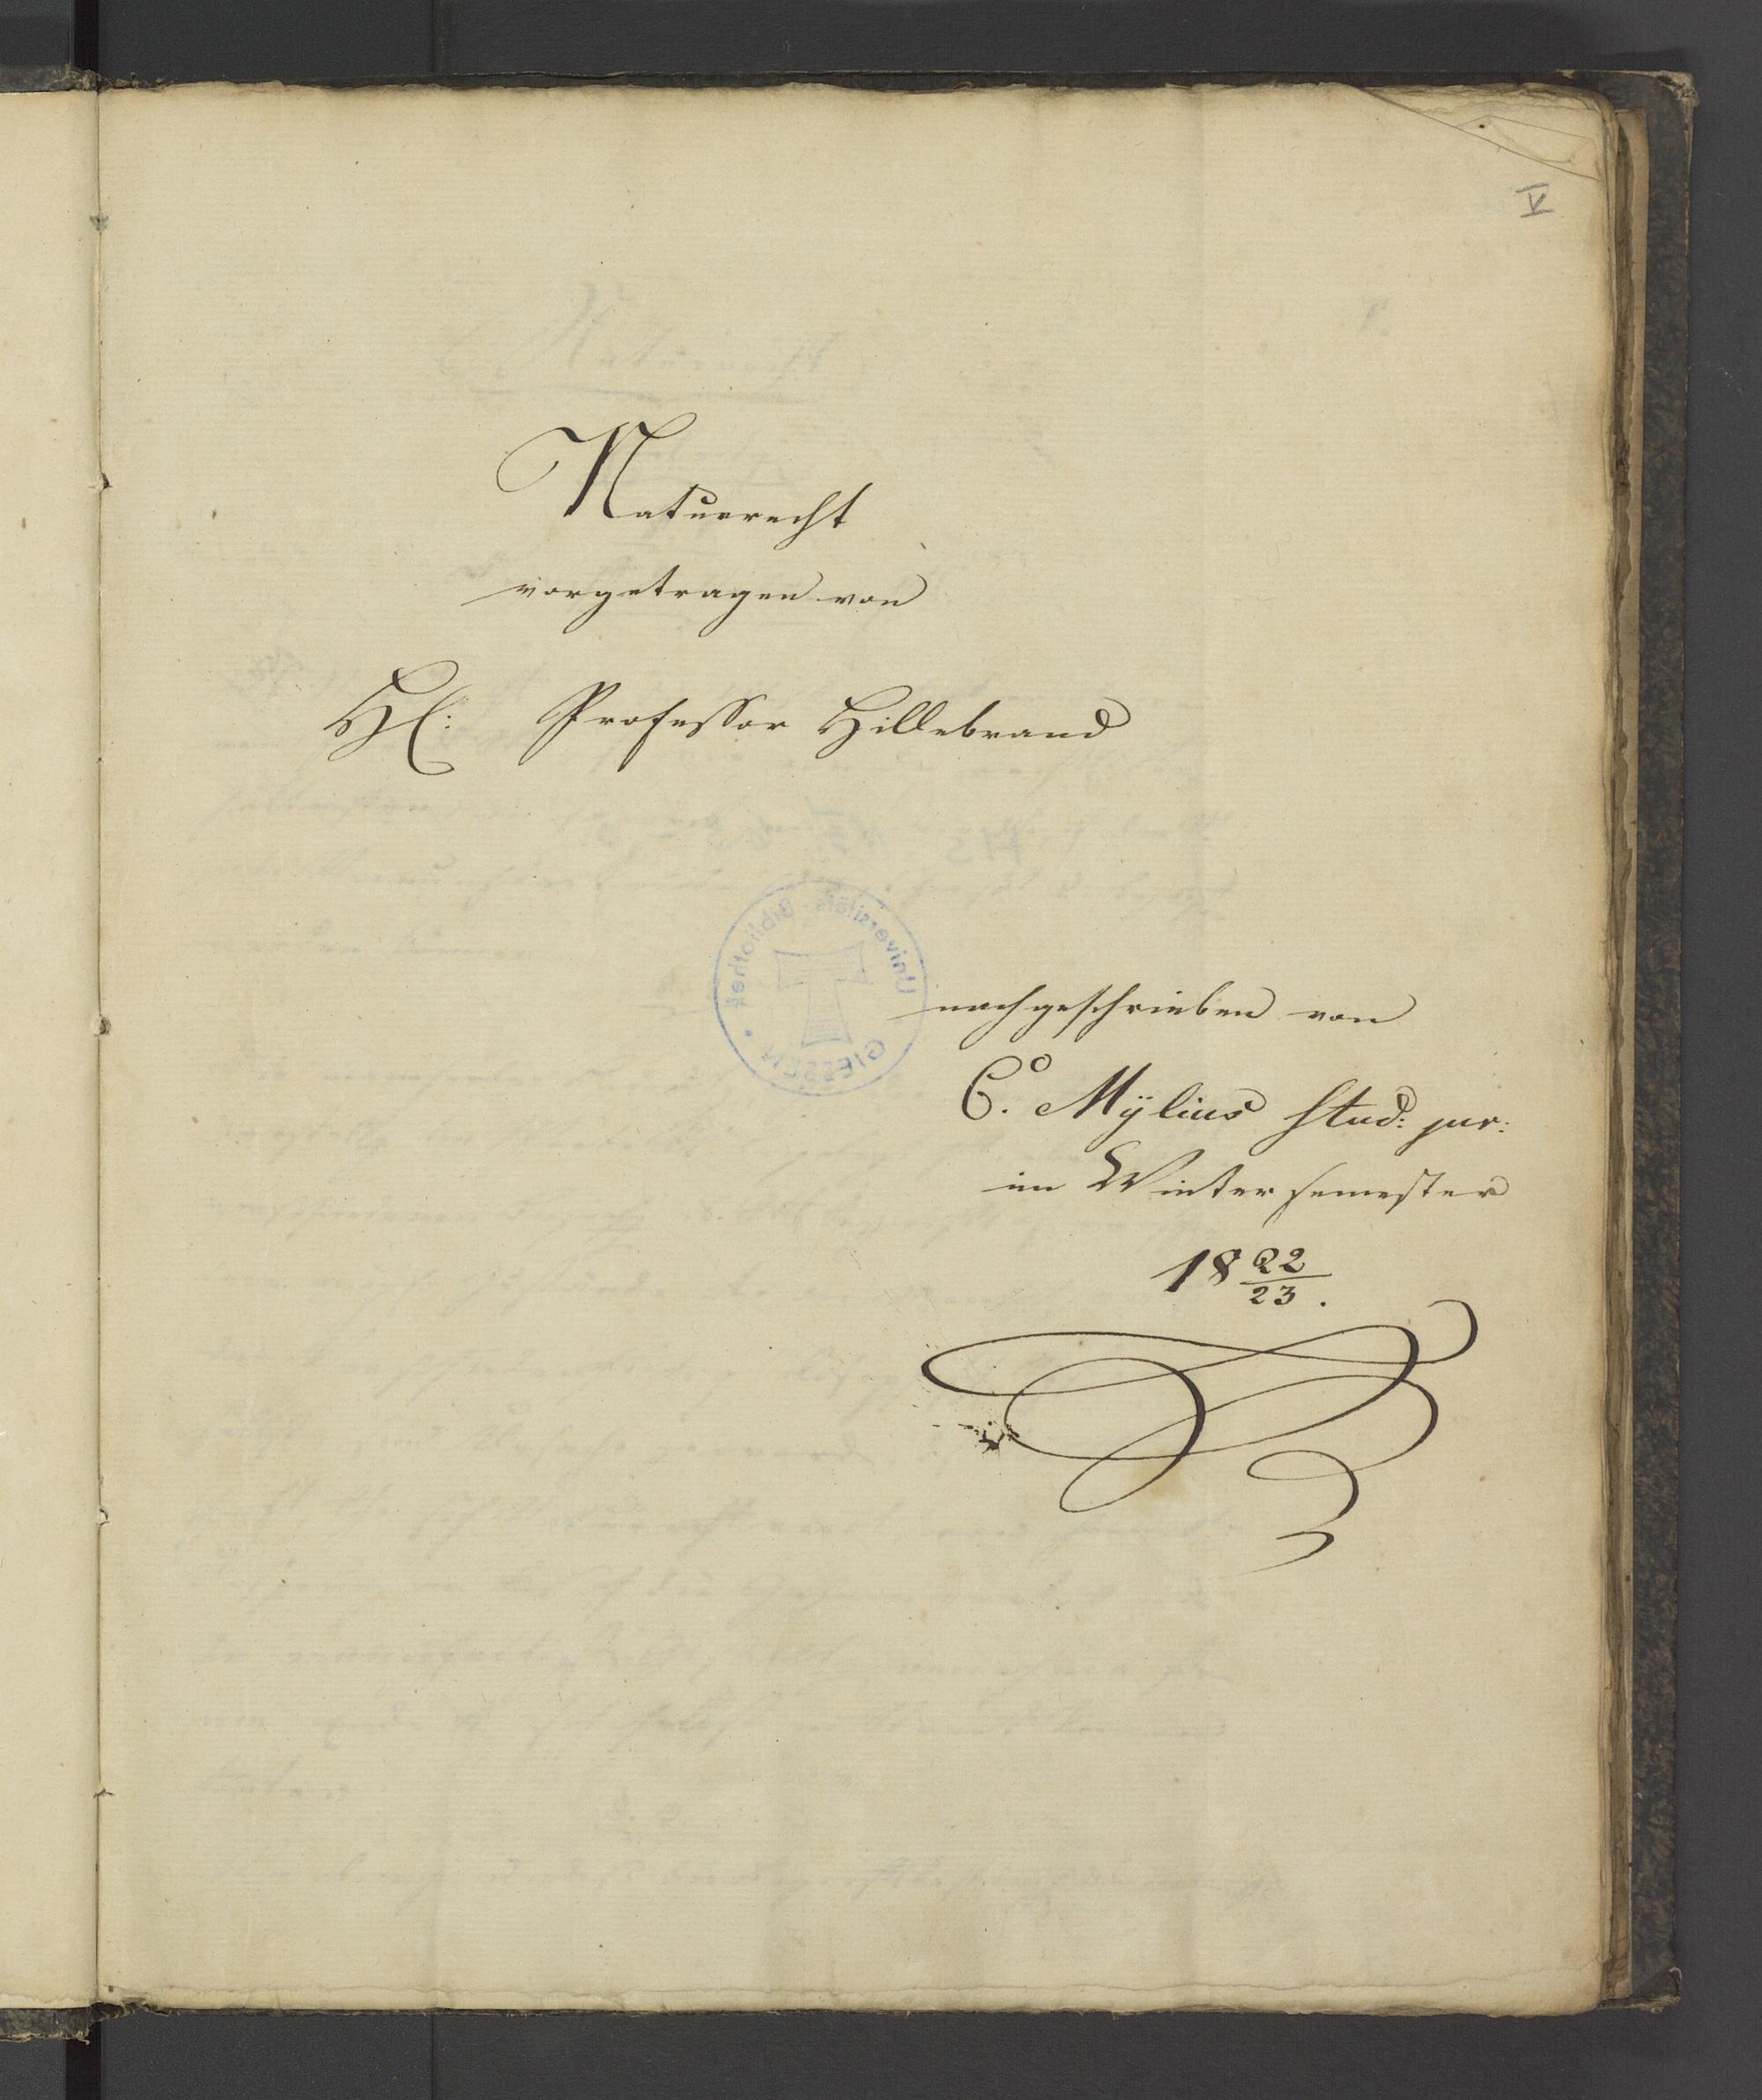 V
Naturrecht
vorgetragen von
H: Professor Hillebrand
Universitäts-Bibliothek
GIESSEN
nachgeschrieben von
C.° Mÿlius stud: jur:
im Wintersemester
18 22/23.